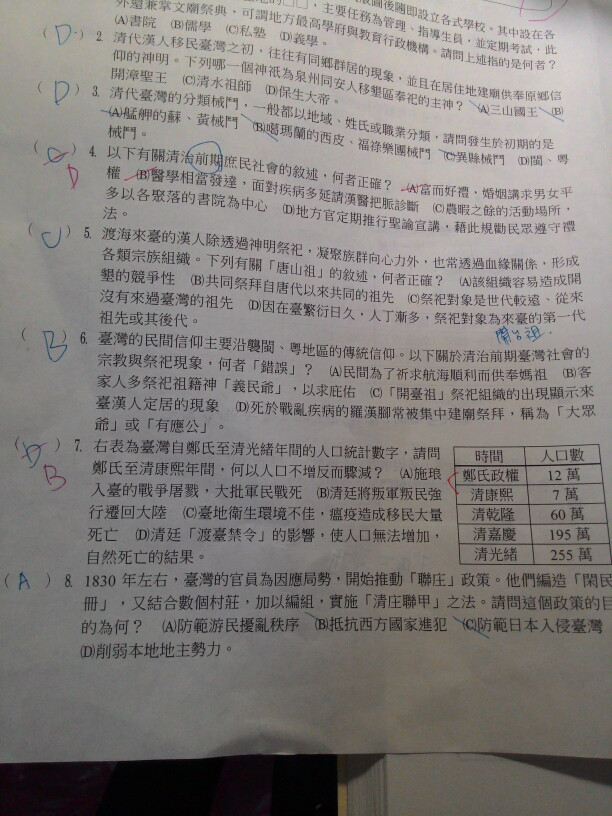 外還兼掌文廟祭典，可謂地方最高學府與教育行政機構。請問上述指的是何者？
，主要任務為管理、指導生員，並定期考試，此
版圖後隨即設立各式學校。其中設在各
(A)書院 (B)儒學 (C)私塾 (D)義學。
(D) 2. 清代漢人移民臺灣之初，往往有同鄉群居的現象，並且在居住地建廟供奉原鄉信
仰的神明。下列哪一個神祇為泉州同安人移墾區奉祀的主神？ (A)三山國王 (B)
開漳聖王 (C)清水祖師 (D)保生大帝。
(D) 3. 清代臺灣的分類械鬥，一般都以地域、姓氏或職業分類，請問發生於初期的是
(A)艋舺的蘇、黃械鬥 (B)噶瑪蘭的西皮、福祿樂團械鬥 (C)異縣械鬥 (D)閩、粵
械鬥。
(C) 4. 以下有關清治前期庶民社會的敘述，何者正確？ (A)富而好禮，婚姻講求男女平
D
權 (B)醫學相當發達，面對疾病多延請漢醫把脈診斷 (C)農暇之餘的活動場所，
多以各聚落的書院為中心 (D)地方官定期推行聖諭宣講，藉此規勸民眾遵守禮
法。
(C) 5. 渡海來臺的漢人除透過神明祭祀，凝聚族群向心力外，也常透過血緣關係，形成
各類宗族組織。下列有關「唐山祖」的敘述，何者正確？ (A)該組織容易造成開
墾的競爭性 (B)共同祭拜自唐代以來共同的祖先 (C)祭祀對象是世代較遠、從來
沒有來過臺灣的祖先 (D)因在臺繁衍日久，人丁漸多，祭祀對象為來臺的第一代
祖先或其後代。
開台祖.
(B) 6. 臺灣的民間信仰主要沿襲閩、粵地區的傳統信仰。以下關於清治前期臺灣社會的
宗教與祭祀現象，何者「錯誤」？ (A)民間為了祈求航海順利而供奉媽祖 (B)客
家人多祭祀祖籍神「義民爺」，以求庇佑 (C)「開臺祖」祭祀組織的出現顯示來
臺漢人定居的現象 (D)死於戰亂疾病的羅漢腳常被集中建廟祭拜，稱為「大眾
爺」或「有應公」。
(D) 7. 右表為臺灣自鄭氏至清光緒年間的人口統計數字，請問
B
鄭氏至清康熙年間，何以人口不增反而驟減？ (A)施琅
入臺的戰爭屠戮，大批軍民戰死 (B)清廷將叛軍叛民強
行遷回大陸 (C)臺地衛生環境不佳，瘟疫造成移民大量
死亡 (D)清廷「渡臺禁令」的影響，使人口無法增加，
自然死亡的結果。
時間 人口數
鄭氏政權 12 萬
清康熙 7 萬
清乾隆 60 萬
清嘉慶 195 萬
清光緒 255 萬
(A) 8. 1830 年左右，臺灣的官員為因應局勢，開始推動「聯庄」政策。他們編造「閑民
冊」，又結合數個村莊，加以編組，實施「清庄聯甲」之法。請問這個政策的目
的為何？ (A)防範游民擾亂秩序 (B)抵抗西方國家進犯 (C)防範日本入侵臺灣
(D)削弱本地地主勢力。